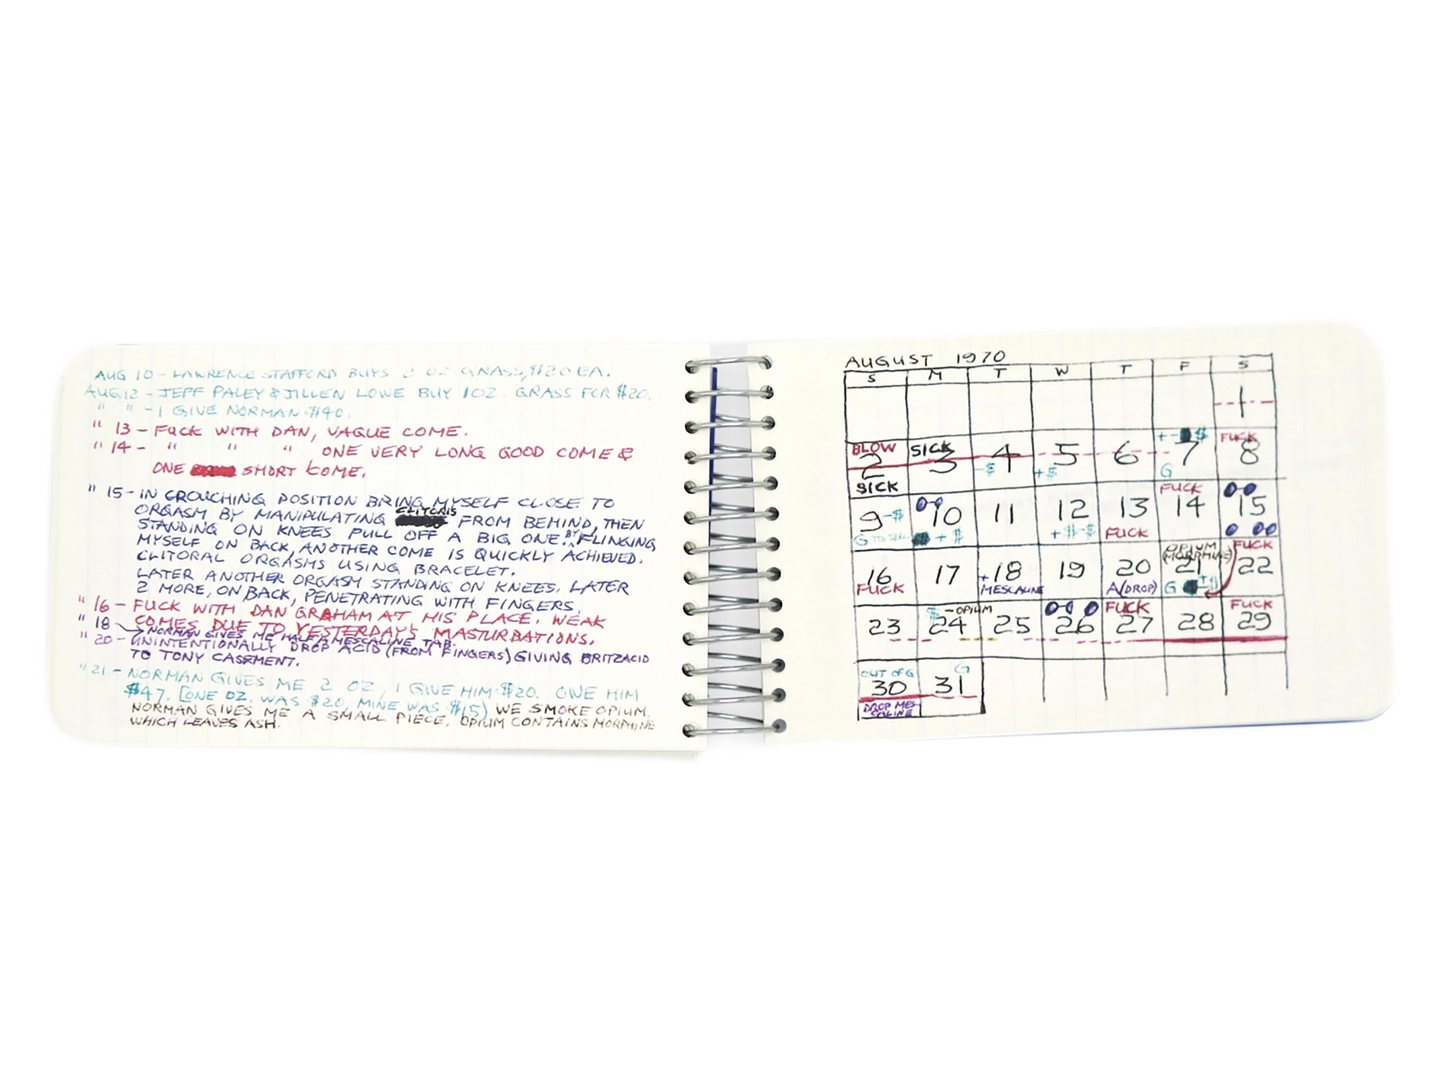 AUG 10 - LAWRENCE STAFFORD BUYS 2 OZ GRASS, $20 EA.
AUG 12 - JEFF PALEY & JILLEN LOWE BUY 1OZ. GRASS FOR $20.
" " - I GIVE NORMAN $40.
" 13 - FUCK WITH DAN, VAGUE COME.
" 14 - " " " ONE VERY LONG GOOD COME &
ONE SHORT COME.
" 15 - IN CROUCHING POSITION BRING MYSELF CLOSE TO
ORGASM BY MANIPULATING CLITORIS FROM BEHIND, THEN
STANDING ON KNEES PULL OFF A BIG ONE. BY FLINGING
MYSELF ON BACK, ANOTHER COME IS QUICKLY ACHIEVED.
CLITORAL ORGASMS USING BRACELET.
LATER ANOTHER ORGASM STANDING ON KNEES. LATER
2 MORE, ON BACK, PENETRATING WITH FINGERS.
" 16 - FUCK WITH DAN GRAHAM AT HIS PLACE. WEAK
COMES DUE TO YESTERDAY'S MASTURBATIONS.
" 18 NORMAN GIVES ME HALF A MESCALINE TAB.
" 20 - UNINTENTIONALLY DROP ACID (FROM FINGERS) GIVING BRITZACID
TO TONY CASEMENT.
" 21 - NORMAN GIVES ME 2 OZ, I GIVE HIM $20. OWE HIM
$47. (ONE OZ. WAS $20, MINE WAS $15) WE SMOKE OPIUM.
NORMAN GIVES ME A SMALL PIECE. OPIUM CONTAINS MORPHINE
WHICH LEAVES ASH.
AUGUST 1970
S M T W T F S
1
BLOW SICK + - $ FUCK
2 3 4 5 6 7 8
SICK -$ +$ G
FUCK
9 -$ 10 11 12 13 14 15
G + $ +$-$ FUCK
OPIUM (MORPHINE) FUCK
16 17 +18 19 20 21 22
FUCK MESCALINE A(DROP) G
$ - OPIUM FUCK FUCK
23 24 25 26 27 28 29
OUT OF G G
30 31
DROP MES-
CALINE